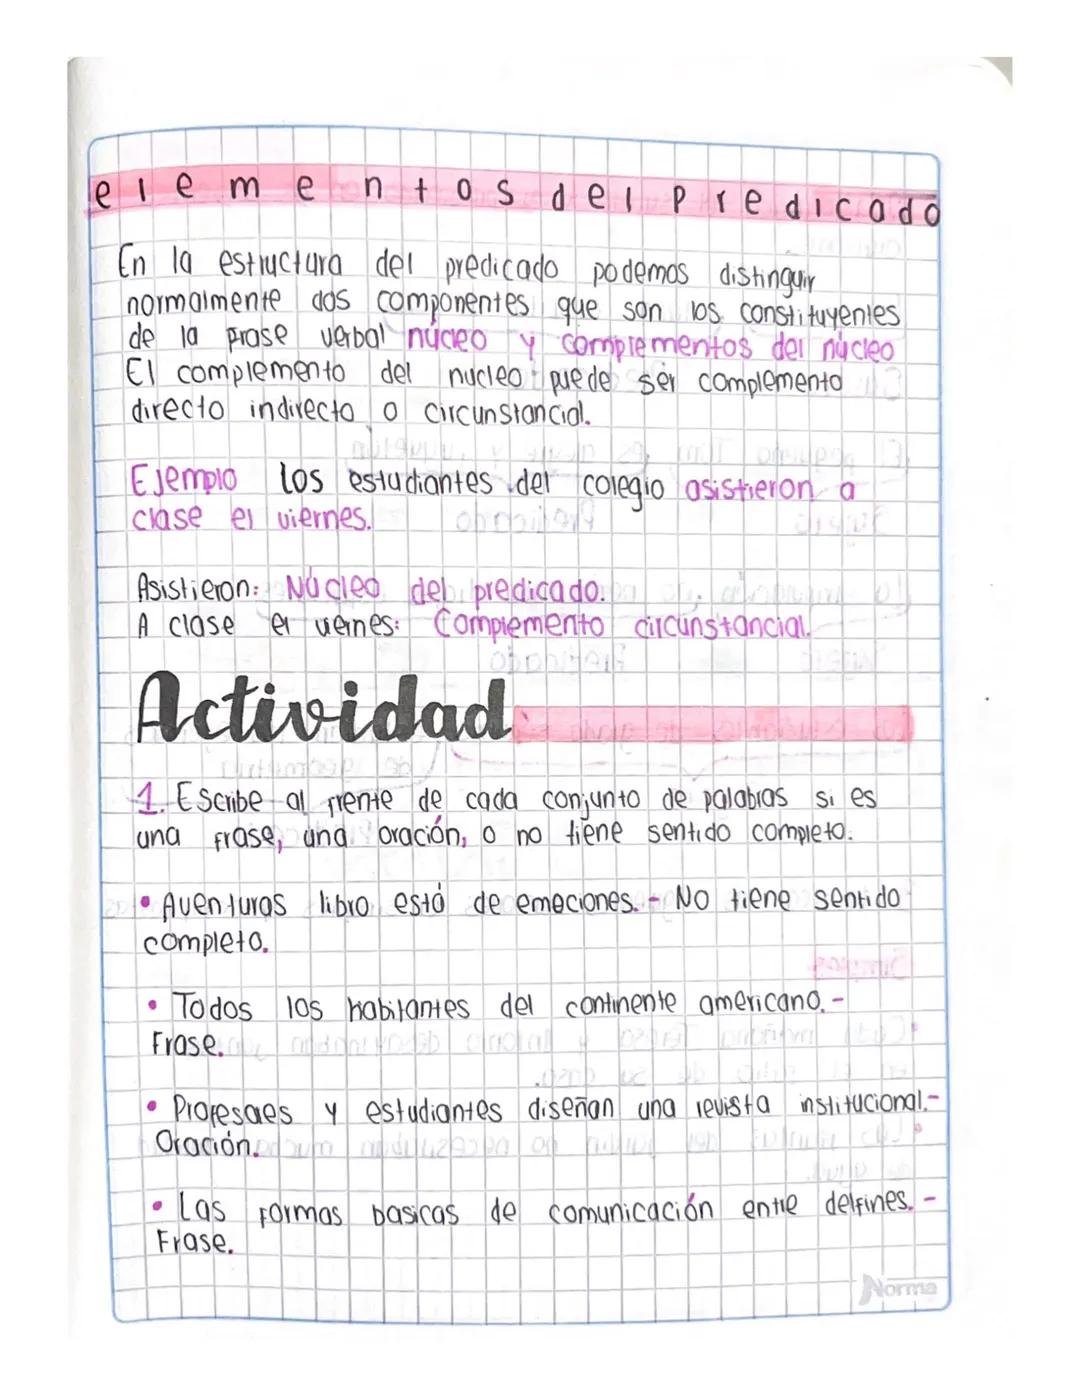 elementos del predicado
En la estructura del predicado podemos distinguir
normalmente dos componentes que son los constituyentes
de la frase verbal núcleo y complementos del núcleo
El complemento del nucleo puede ser complemento
directo indirecto o circunstancial.
Ejemplo los estudiantes del colegio asistieron a
clase el viernes.
Asistieron: Núcleo del predicado.
A clase el vernes: Complemento circunstancial.
Actividad
1. Escribe al frente de cada conjunto de palabras si es
una frase, una oración, o no tiene sentido completo.
• Aventuras libro está de emociones. - No tiene sentido
completo.
• Todos los habitantes del continente americano. -
Frase.
• Profesores y estudiantes diseñan una revista institucional. -
Oración.
• Las formas basicas de comunicación entre delfines. -
Frase.
Norma